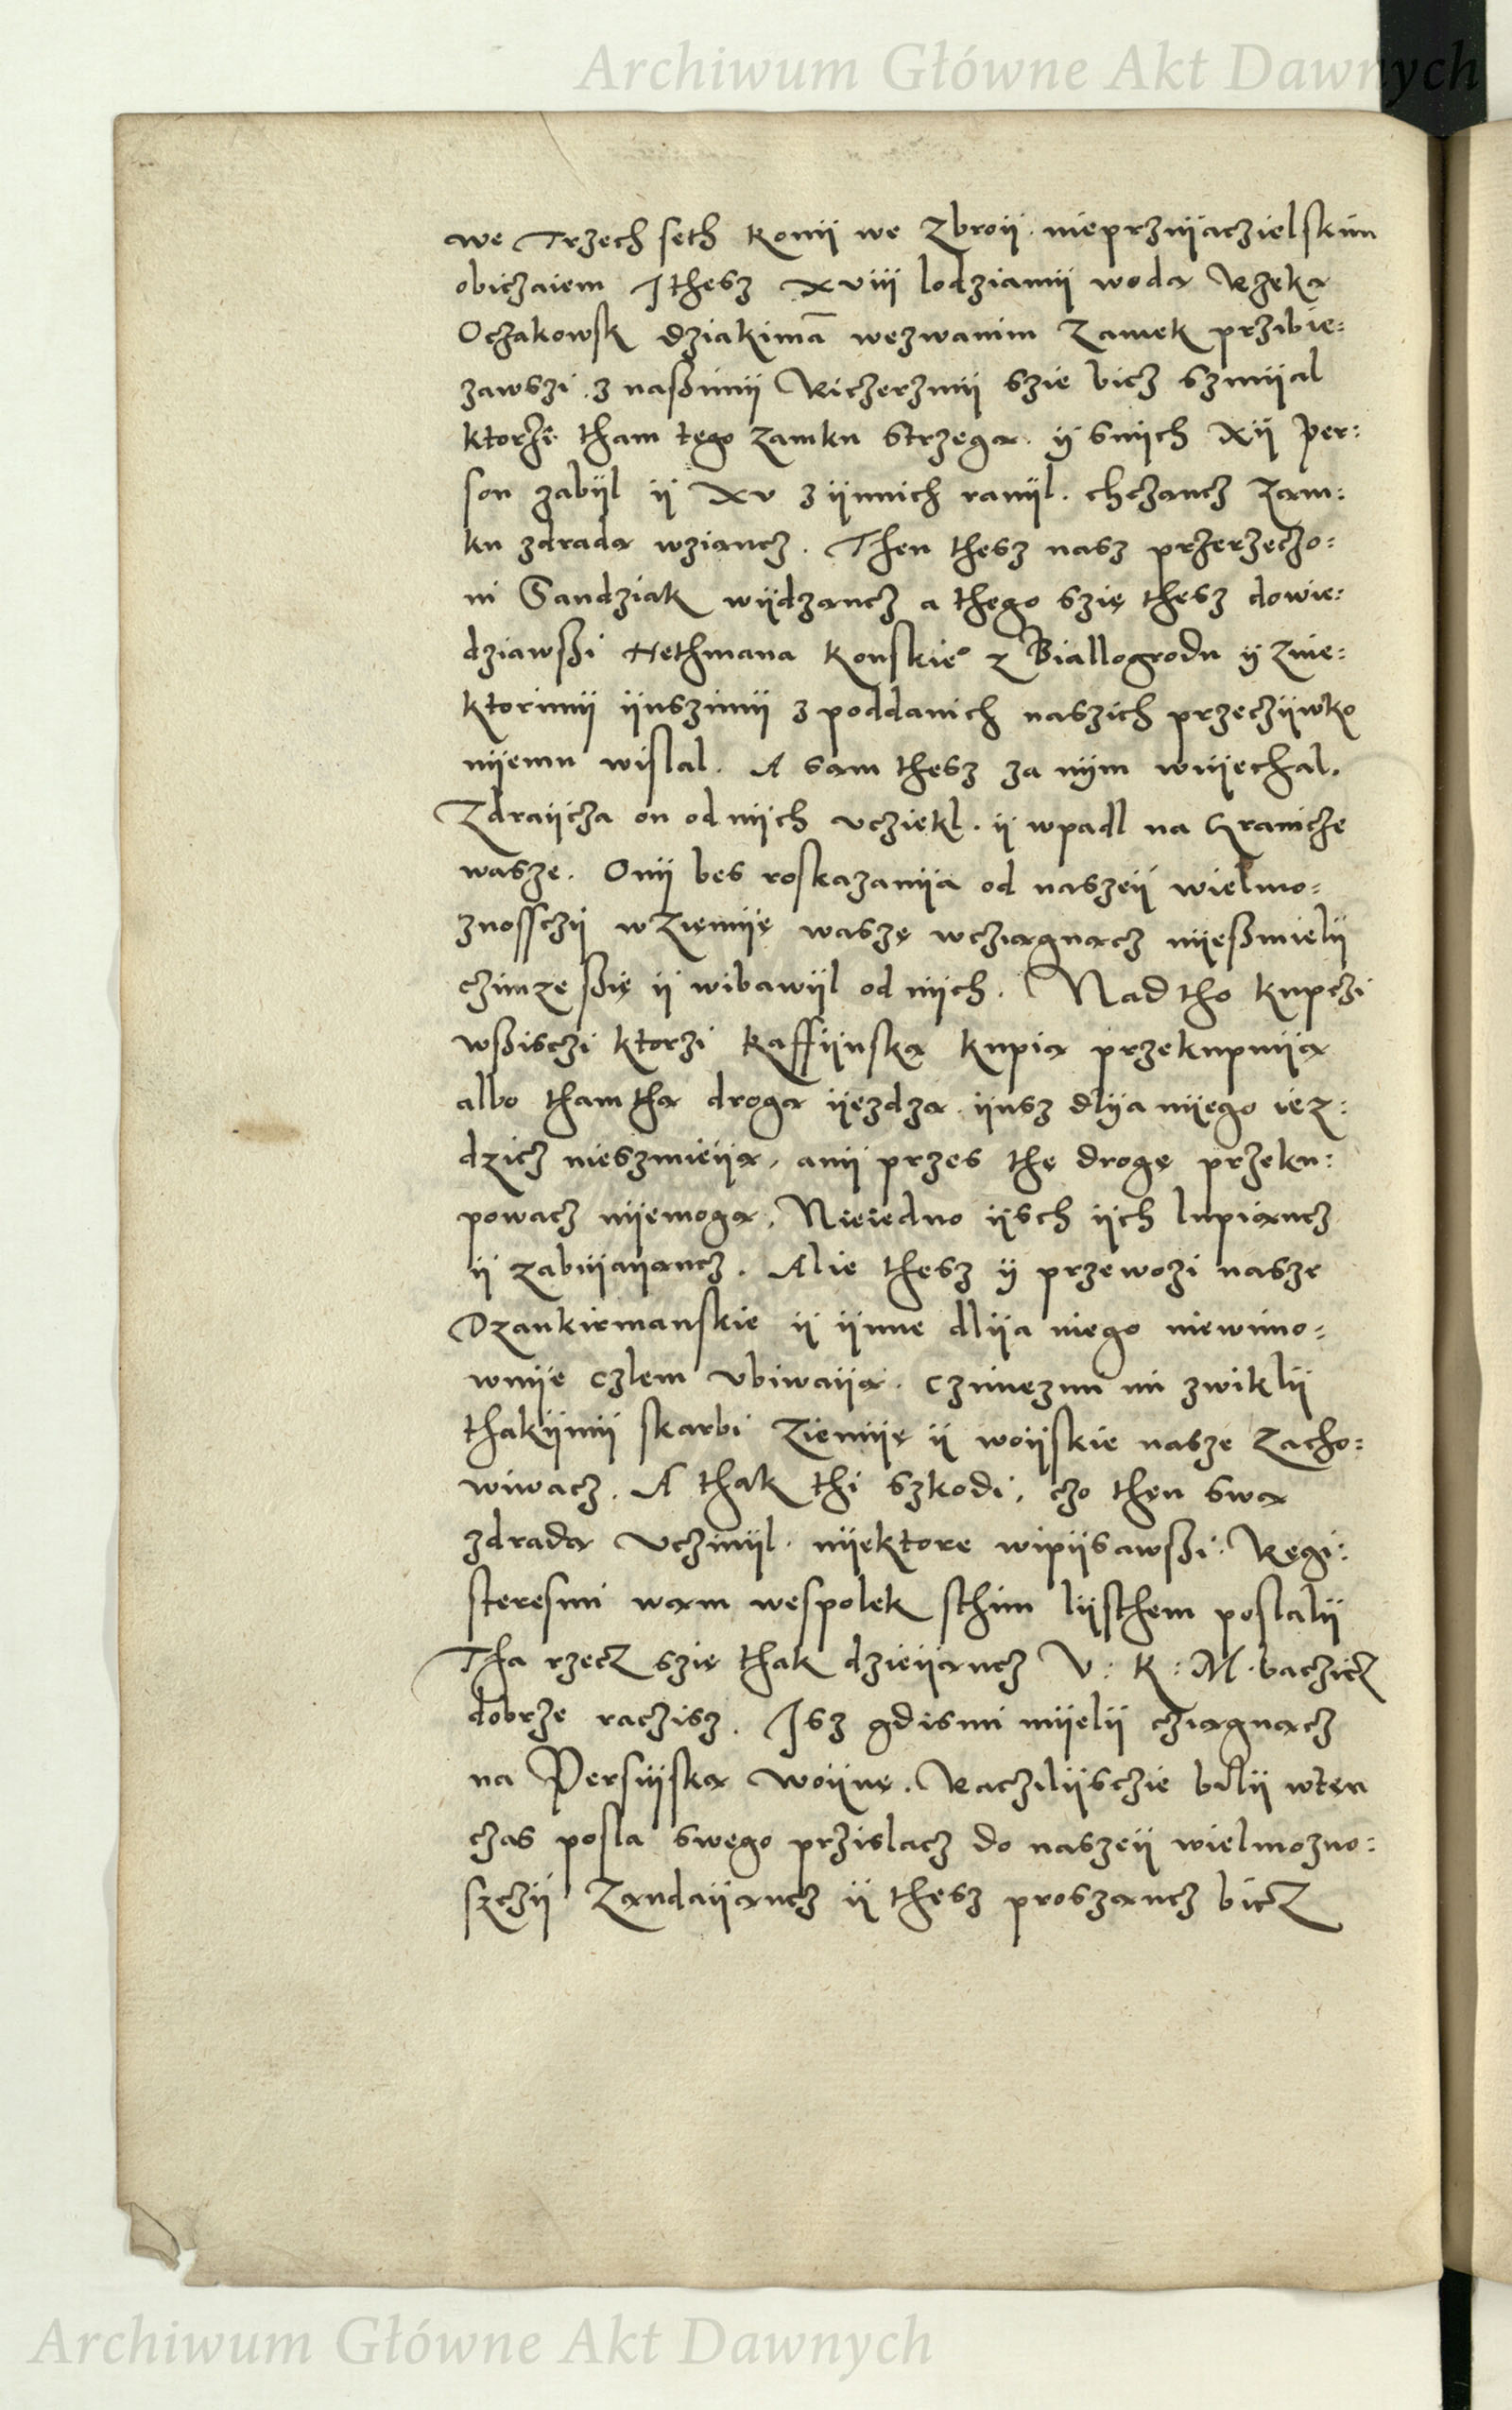 Archiwum Główne Akt Dawnych
we Trzech seth konij we Zbroij. nieprzijaczielskim
obiczaiem J thesz xviii lodziamij woda Rzeka
Oczakowsk dziakimā wezwanim Zamek przibie:
zawszi. z naßimij Riczerzmij szie bicz szmijal
ktorzi tham tęgo zamku strzega. ij snijch xij per:
son zabijl ij xv z ijnnich ranijl. chczancz zam:
ku zdrada wziancz. Then thesz nasz przerzeczo:
ni Sandziak wijdzancz a thego szię thesz dowie:
dziawßi Hethmana konskieº z Biallogrodu ij znie:
ktorimij ijnszimij z poddanich naszich przeczijwko
nijemu wislal. A sam thesz za nijm wijechal.
Zdraijcza on od nijch vcziekl. ij wpadl na Graniche
wasze. Onij bes roskazanija od naszeij wielmo:
znossczij w Ziemiję waszę wcziagnacz nijeßmielij
czimze ßię ij wibawijl od nijch. Nad tho kupczi
wßisczi ktorzi kaffijnska kupia przekupuija
albo tham tha droga ijezdza. ijusz dlija nijego iez:
dzicz nieszmieija, anij przes thę drogę przeku:
powacz nijemoga. Nieiedno ijsch ijch lupiancz
ij zabijaijancz. Alie thesz ij przewozi nasze
Dzankirmanskie ij ijnne dlija niego niewimo:
wnije czlem vbiwaija. Czimezmi mi zwiklij
thakijmij skarbi Ziemiję ij woijskie nasze zacho:
wiwacz. A thak thi szkodi, czo thęn swa
zdrada vczinijl. nijektore wipijsawßi. Regi:
steresmi wam wespolek sthim lijsthem poslalij
Tha rzecz szię thak dzieijancz V: K: M. baczicz
dobrze raczisz. Jsz gdismi mijelij cziagnacz
na Persijska woijnę. Raczilijsczie bilij wtęn
czas posla swęgo przislacz do naszeij wielmozno:
szczij Zandaijancz ij thesz proszancz bicz
Archiwum Główne Akt Dawnych